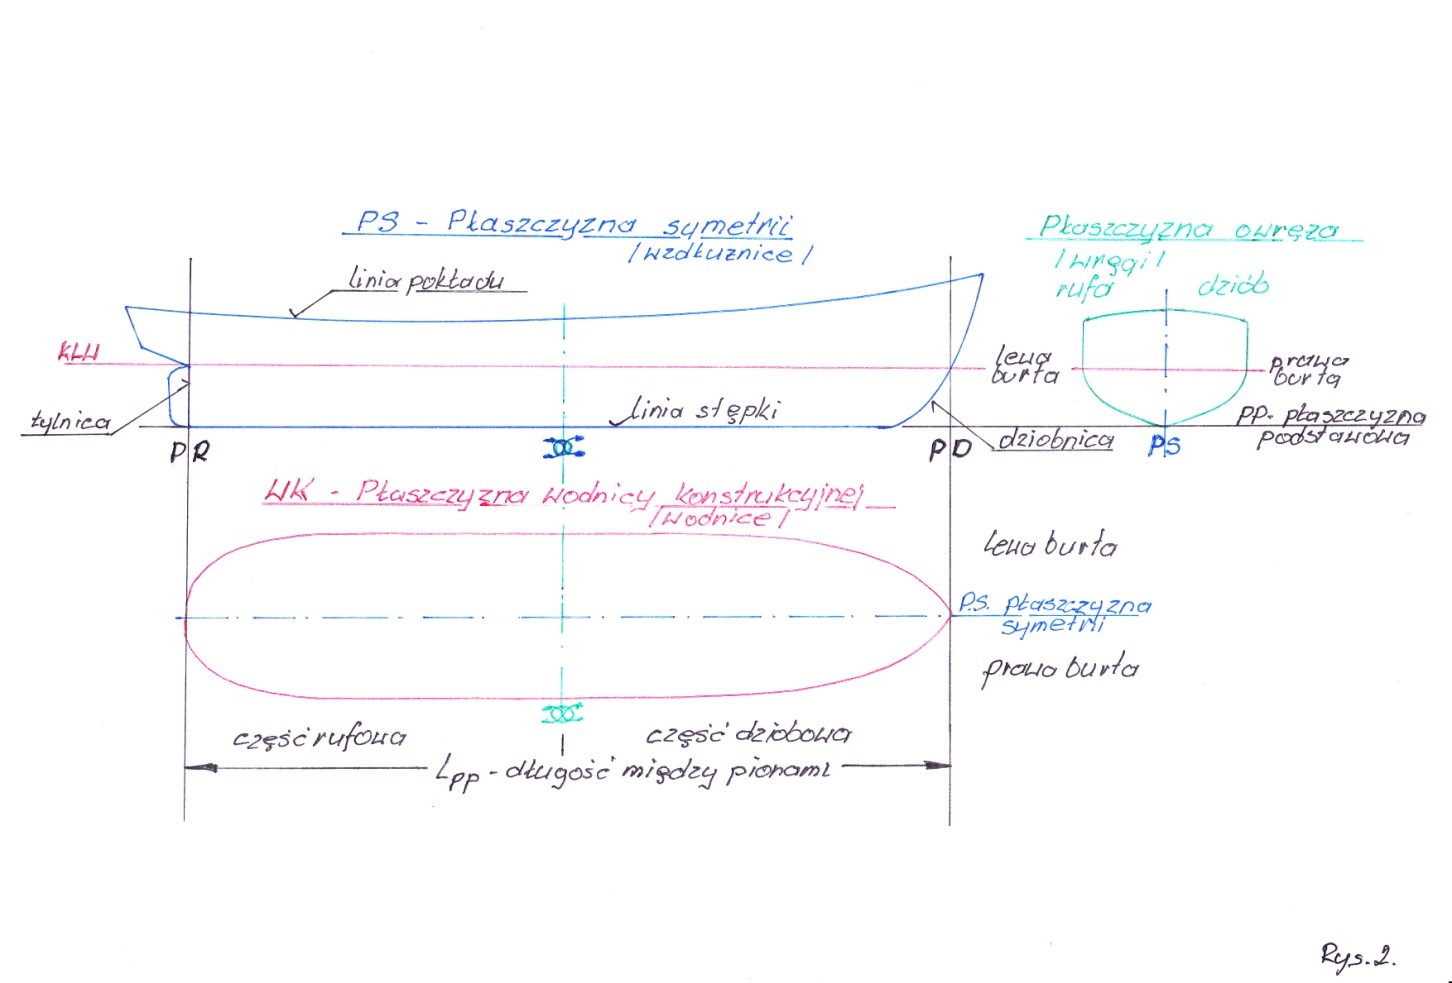 PS - Płaszczyzna symetrii
/wzdłużnice/
Płaszczyzna owręża
/wręgi/
rufa
dziób
linia pokładu
KLW
lewa
burta
prawa
burta
tylnica
linia stępki
dziobnica
PP- płaszczyzna
podstawowa
PR
PD
PS
WK - Płaszczyzna wodnicy konstrukcyjnej
/wodnice/
lewa burta
P.S. płaszczyzna
symetrii
prawa burta
część rufowa
część dziobowa
Lpp - długość między pionami
Rys. 2.